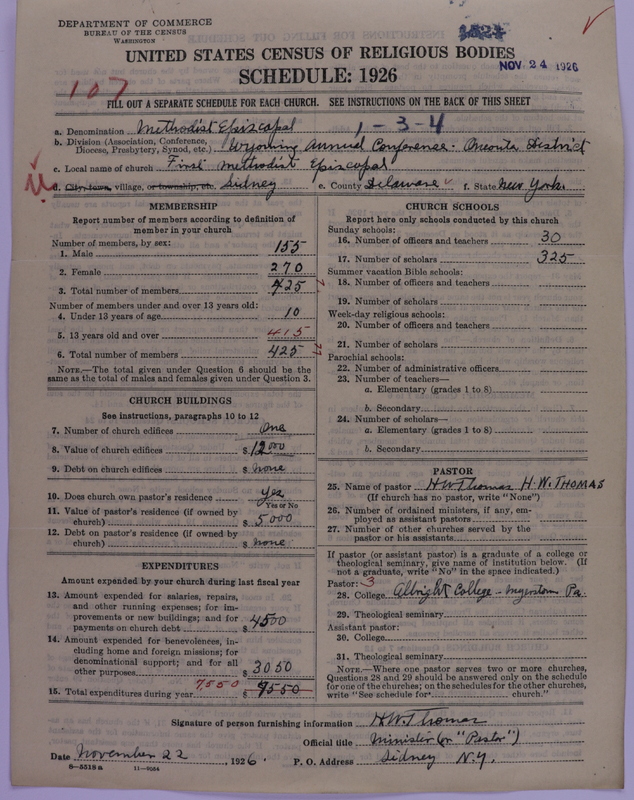 DEPARTMENT OF COMMERCE
BUREAU OF THE CENSUS
WASHINGTON
UNITED STATES CENSUS OF RELIGIOUS BODIES
SCHEDULE: 1926
NOV 24 1926
107
FILL OUT A SEPARATE SCHEDULE FOR EACH CHURCH. SEE INSTRUCTIONS ON THE BACK OF THIS SHEET
a. Denomination Methodist Episcopal 1-3-4
b. Division (Association, Conference, Diocese, Presbytery, Synod, etc.) Wyoming Annual Conference - Oneonta District
c. Local name of church First Methodist Episcopal
d. City, town, village, or township, etc. Sidney e. County Delaware f. State New York
MEMBERSHIP
Report number of members according to definition of member in your church
Number of members, by sex:
1. Male 155
2. Female 270
3. Total number of members 425
Number of members under and over 13 years old:
4. Under 13 years of age 10
5. 13 years old and over 415
6. Total number of members 425
NOTE.—The total given under Question 6 should be same as the total of males and females given under Question 3.
CHURCH BUILDINGS
See instructions, paragraphs 10 to 12
7. Number of church edifices One
8. Value of church edifices $ 12000
9. Debt on church edifices $ none
10. Does church own pastor's residence yes
Yes or No
11. Value of pastor's residence (if owned by church) $ 5000
12. Debt on pastor's residence (if owned by church) $ none
EXPENDITURES
Amount expended by your church during last fiscal year
13. Amount expended for salaries, repairs, and other running expenses; for improvements or new buildings; and for payments on church debt $ 4500
14. Amount expended for benevolences, including home and foreign missions; for denominational support; and for all other purposes $ 3050
15. Total expenditures during year 7550 $ 9550
CHURCH SCHOOLS
Report here only schools conducted by this church
Sunday schools:
16. Number of officers and teachers 30
17. Number of scholars 325
Summer vacation Bible schools:
18. Number of officers and teachers
19. Number of scholars
Week-day religious schools:
20. Number of officers and teachers
21. Number of scholars
Parochial schools:
22. Number of administrative officers
23. Number of teachers—
a. Elementary (grades 1 to 8)
b. Secondary
24. Number of scholars—
a. Elementary (grades 1 to 8)
b. Secondary
PASTOR
25. Name of pastor HW Thomas H.W. THOMAS
(If church has no pastor, write "None")
26. Number of ordained ministers, if any, employed as assistant pastors
27. Number of other churches served by the pastor or his assistants
If pastor (or assistant pastor) is a graduate of a college or theological seminary, give name of institution below. (If not a graduate, write "No" in the space indicated.)
Pastor: 3
28. College Albright College - Myerstown Pa.
29. Theological seminary
Assistant pastor:
30. College
31. Theological seminary
NOTE.—Where one pastor serves two or more churches, Questions 28 and 29 should be answered only on the schedule for one of the churches; on the schedules for the other churches, write "See schedule for church."
Signature of person furnishing information HW Thomas
Official title Minister (or "Pastor")
Date November 22 1926. P. O. Address Sidney N.Y.
8-5518a 11-9054